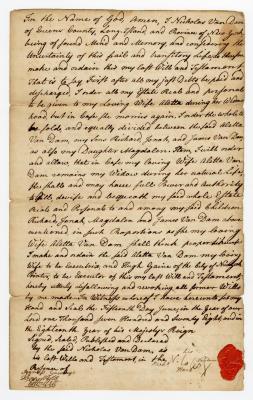 In the Name of God Amen, I Nicholas Van Dam
of Queens County, Long-Island, and Province of New York
being of sound Mind and Memory, and considering the
Uncertainty of this frail and transitory Life, do
make and ordain this my last Will and Testament,
That is to say First after all my just Debts be paid and
discharged I order all my Estate Real and personal
to be given to my loving Wife Aletta during her Widow
hood but in Case she marries again I order the whole to
be sold and equally divided between the said Aletta
Van Dam, my Sons Richard, Jonah and James Van Dam
as also my Daughter Magdalen. Item, I will order
and allow that in Case my loving Wife Aletta Van
Dam remains my Widow during her natural Life,
she shall and may have full Power and Authority
to devise and bequeath my said whole Estate
Real and Personal to and among my said Children
Richard, Jonah, Magdalen and James Van Dam above
mentioned in such Proportions as she my loving
Wife Aletta Van Dam shall think proper
make and ordain the said Aletta Van Dam my loving
Wife to be Executrix and Hugh Gaine of the City of New York
Printer, to be Executor of this my last Will and Testament,
hereby utterly disallowing and revoking all former Wills
by me made. In Witness whereof I have hereunto set my
Hand and Seal the Fifteenth Day June, in the Year of our
Lord one Thousand, seven Hundred and Seventy Eight, and in
the Eighteenth Year of his Majesty's Reign
Signed, sealed Published and Declared
by the said Nicholas Van Dam, as
his last Will and Testament, in the
Presence of
his